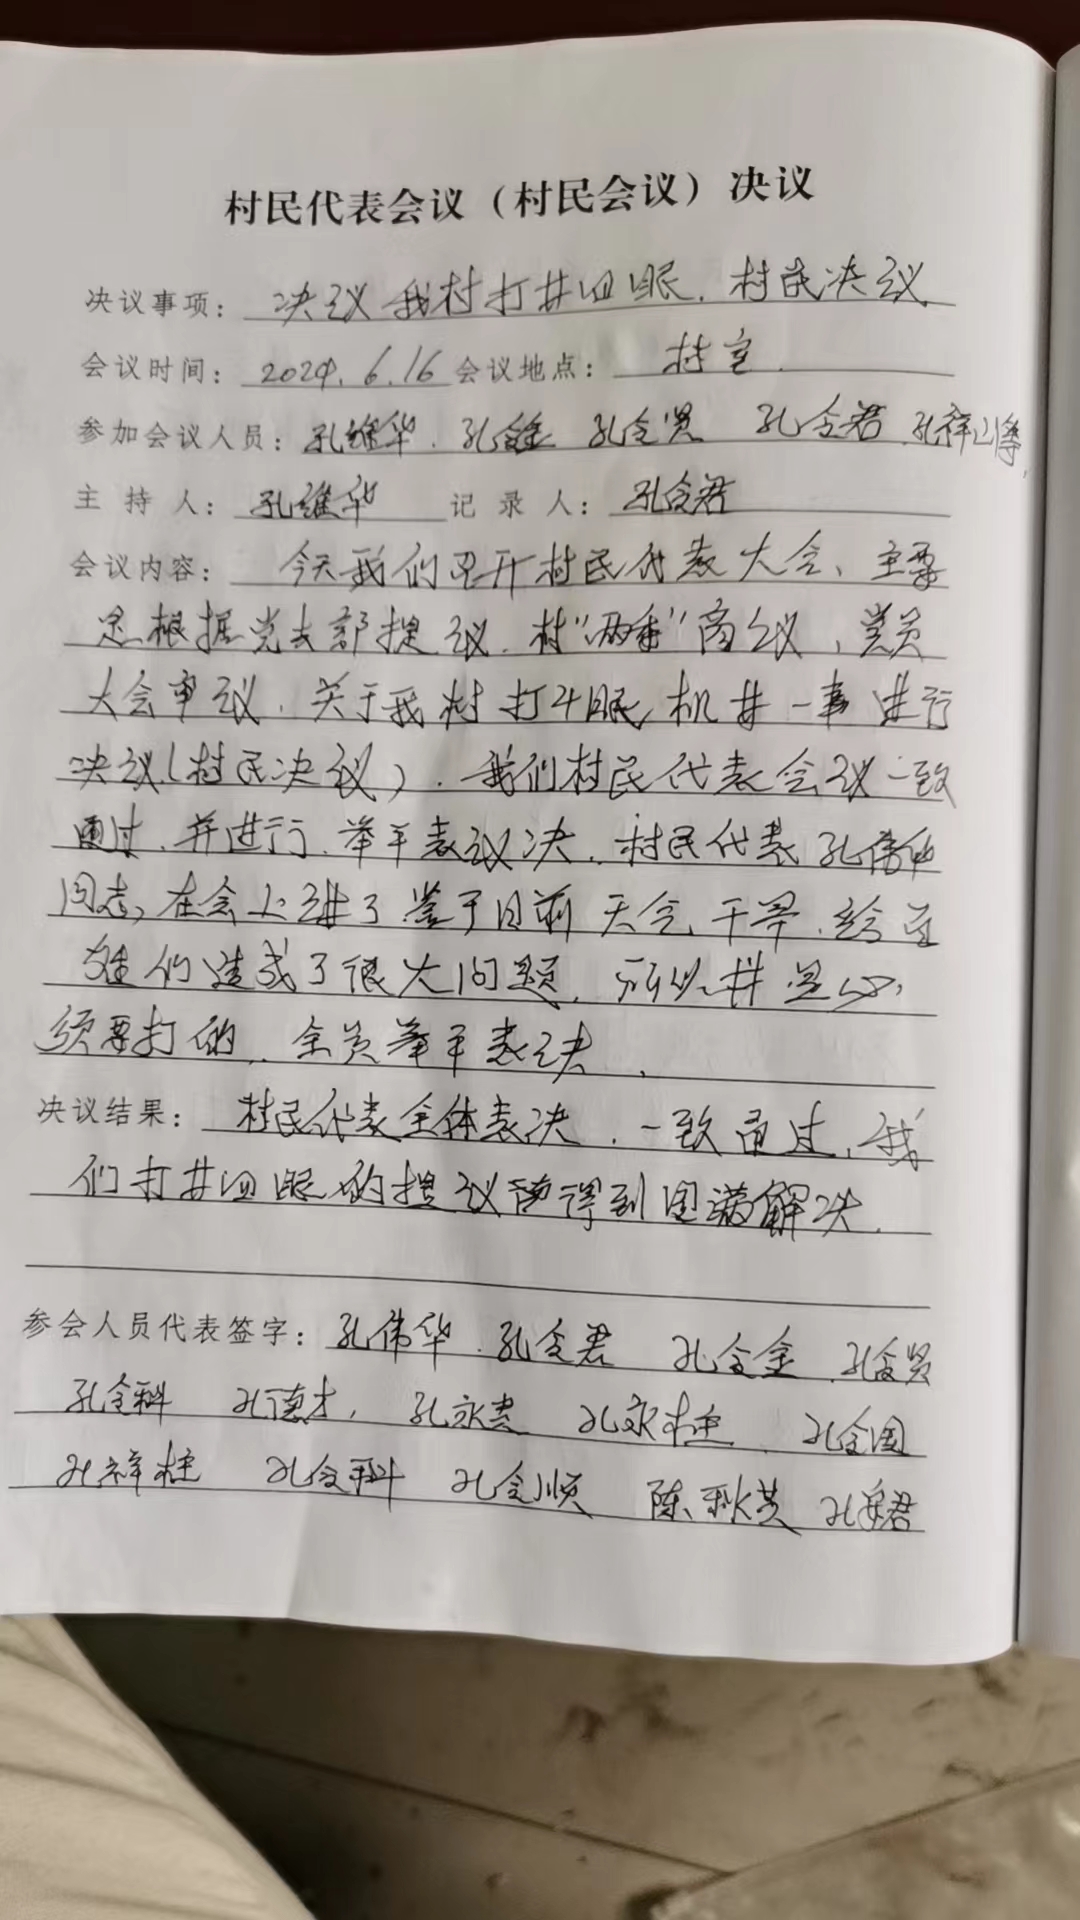 村民代表会议（村民会议）决议
决议事项：决议我村打井四眼，村民决议
会议时间：2024.6.16 会议地点：村室
参加会议人员：孔维华、孔令金 孔令贤 孔令君 孔祥山等
主持人：孔维华 记录人：孔令君
会议内容：今天我们召开村民代表大会、主要
是根据党支部提议、村“两委”商议、党员
大会审议、关于我村打4眼机井一事进行
决议（村民决议）、我们村民代表会议一致
通过、并进行、举手表议决、村民代表孔伟华
同志，在会上讲了鉴于目前天气干旱、给百
姓们造成了很大问题、所以井是必
须要打的，全员举手表决、
决议结果：村民代表全体表决、一致通过、我
们打井四眼的提议 得到圆满解决、
参会人员代表签字：孔伟华、孔令君 孔令金、孔令贤
孔令科 孔德才、孔永贵 孔永柱、孔令国
孔祥柱 孔令科 孔令顺 陈秋英 孔 君